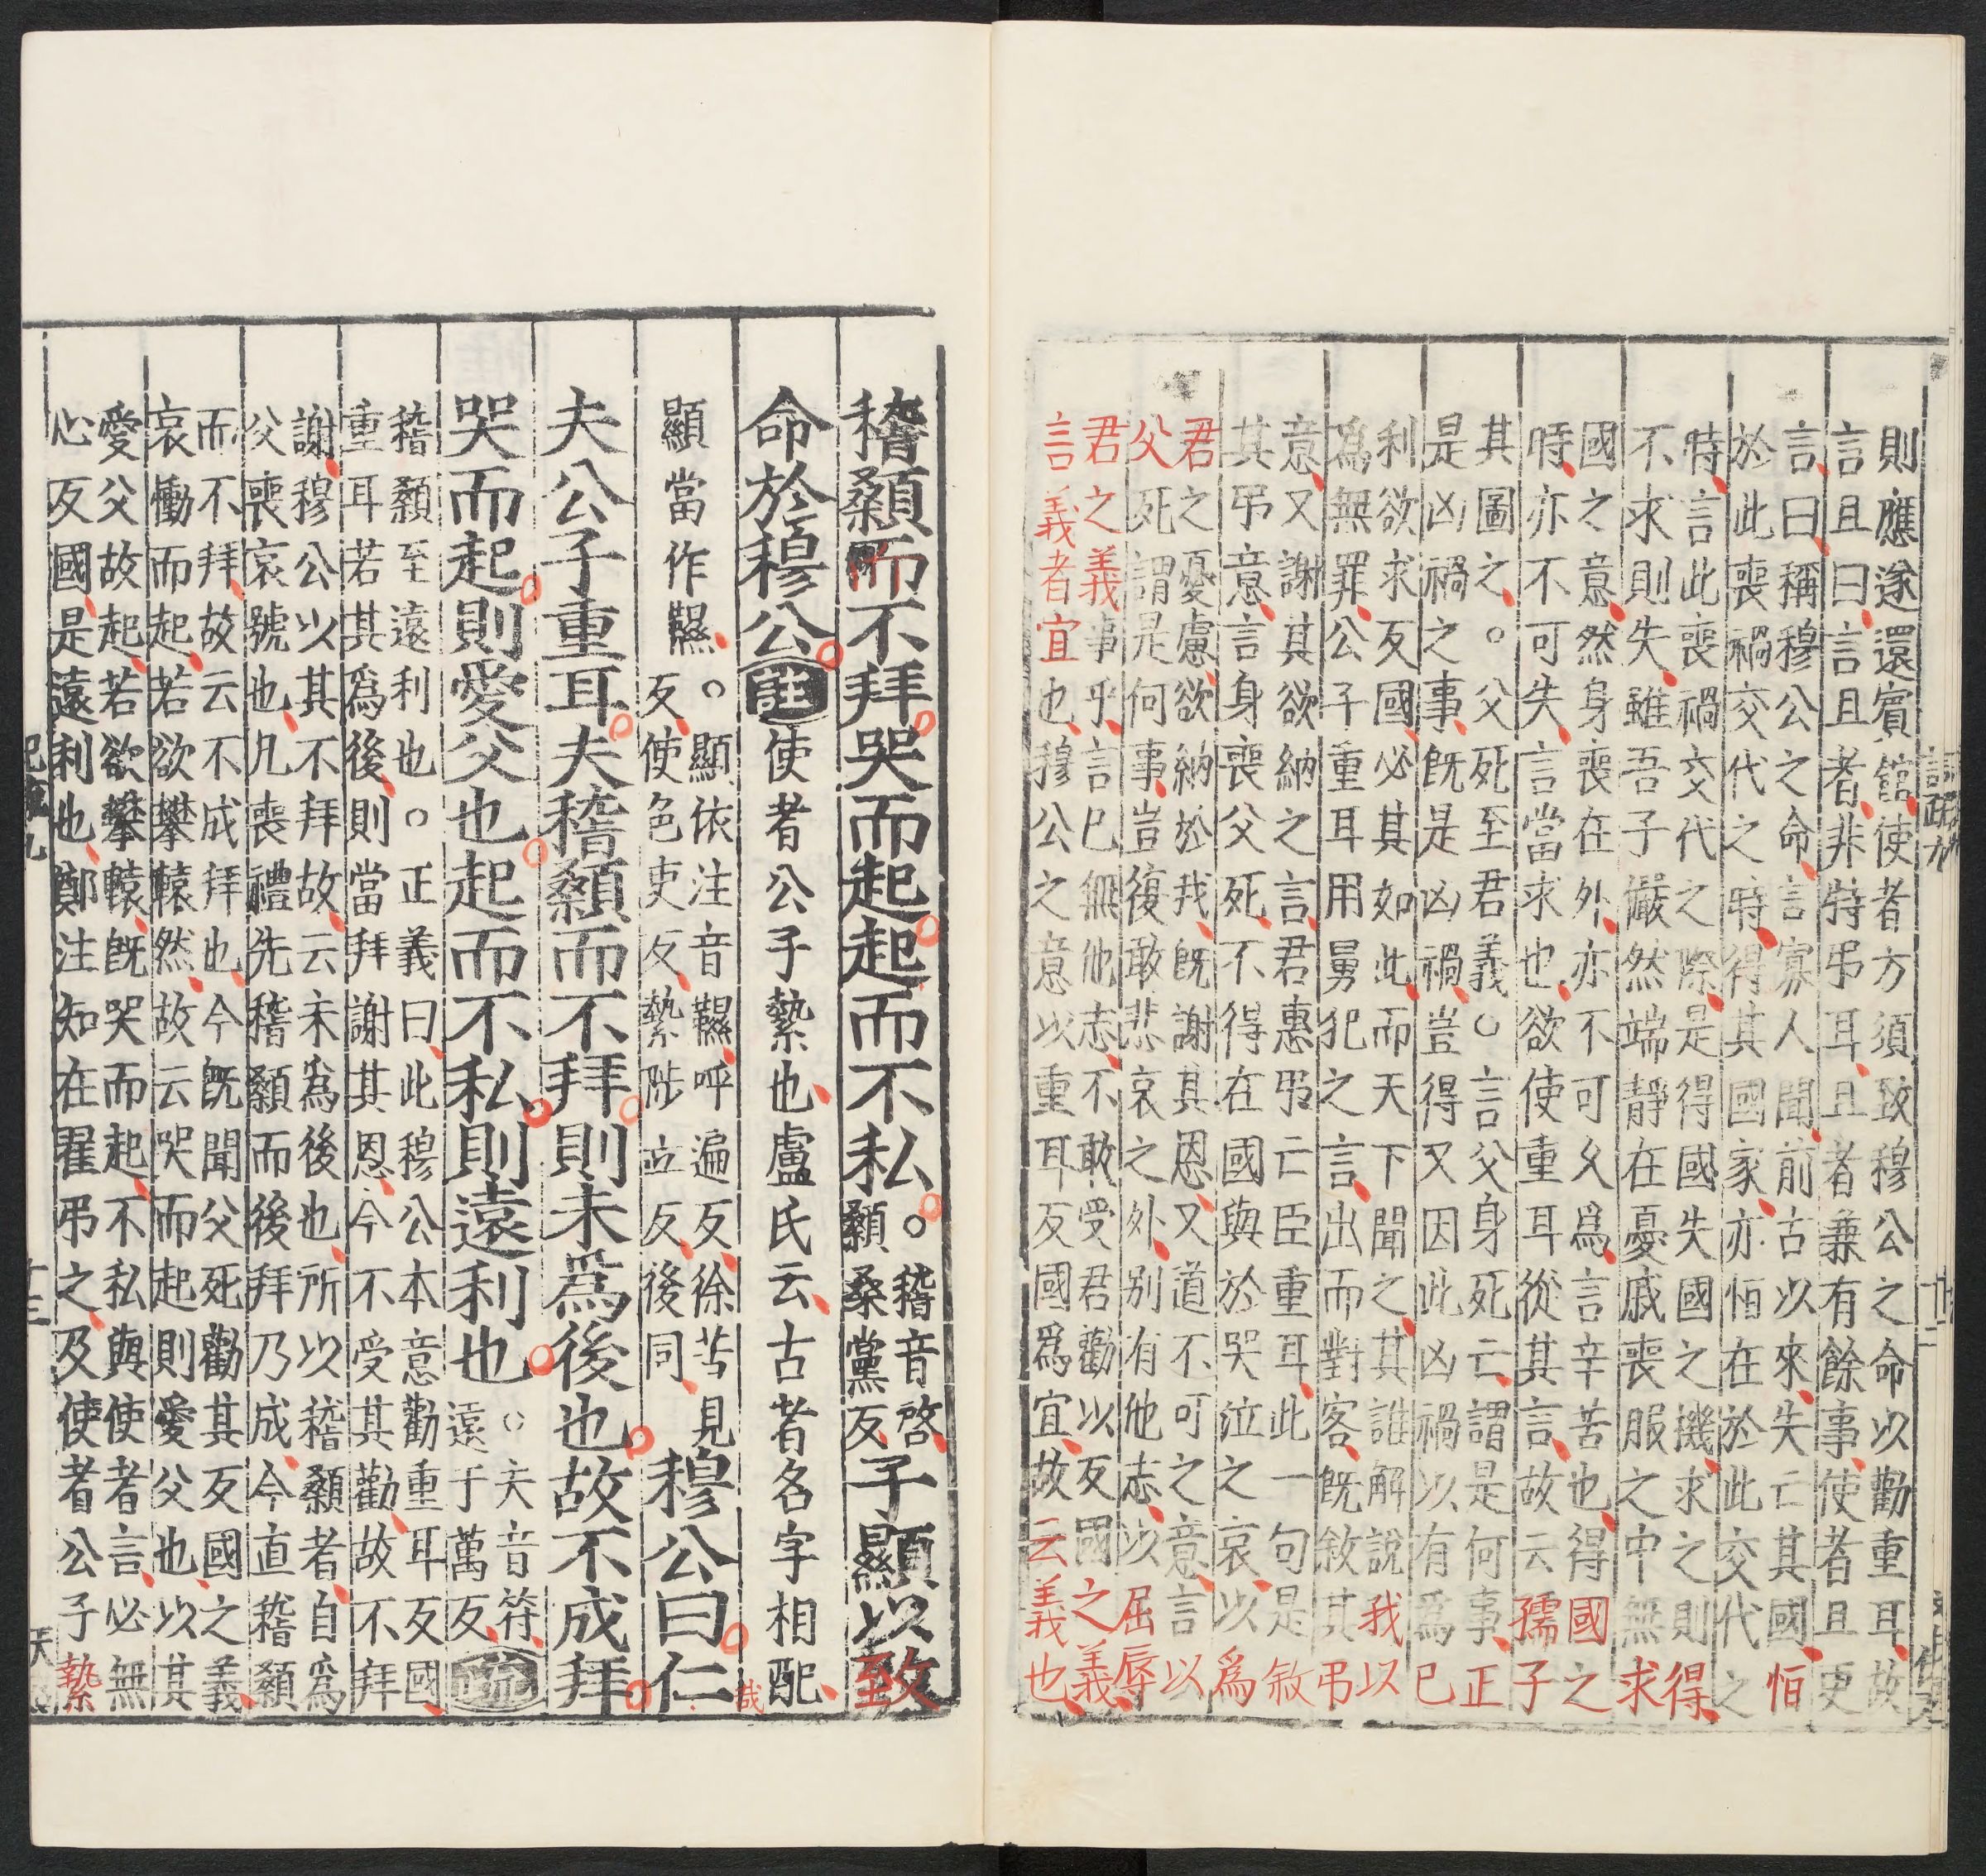 則應遂還賓館使者方須致穆公之命以勸重耳故
言且曰言且者非特弔耳且者兼有餘事使者且更
言曰稱穆公之命言寡人聞前古以來失亡其國恒
於此喪禍交代之時得其國家亦恒在於此交代之
特言此喪禍交代之際是得國失國之機求之則得
不求則失雖吾子儼然端靜在憂戚喪服之中無求
國之意然身喪在外亦不可久爲言辛苦也得國之
時亦不可失言當求也欲使重耳從其言故云孺子
其圖之。父死至君義○言父身死亡謂是何事正
是凶禍之事旣是凶禍豈得又因此凶禍以有爲己
利欲求反國必其如此而天下聞之其誰解說我以
爲無罪公子重耳用舅犯之言出而對客旣敘其弔
意又謝其欲納之言君惠弔亡臣重耳此一句是敘
其弔意言身喪父死不得在國與於哭泣之哀以爲
君之憂慮欲納於我旣謝其恩又道不可之意言以
父死謂是何事豈復敢悲哀之外别有他志以屈辱
君之義事乎言己無他志不敢受君勸以反國之義
言義者宜也穆公之意以重耳反國爲宜故云義也
稽顙而不拜哭而起起而不私。稽音啓顙桑黨反子顯以致
命於穆公註使者公子縶也盧氏云古者名字相配
顯當作韅。顯依注音韅呼遍反徐苦見反使色吏反縶陟立反後同穆公曰仁哉
夫公子重耳夫稽顙而不拜則未爲後也故不成拜
哭而起則愛父也起而不私則遠利也○夫音符遠于萬反疏
稽顙至遠利也○正義曰此穆公本意勸重耳反國
重耳若其爲後則當拜謝其恩今不受其勸故不拜
謝穆公以其不拜故云未爲後也所以稽顙者自爲
父喪哀號也凡喪禮先稽顙而後拜乃成今直稽顙
而不拜故云不成拜也今旣聞父死勸其反國之義
哀慟而起若欲攀轅然故云哭而起則愛父也以其
愛父故起若欲攀轅旣哭而起不私與使者言必無
心反國是遠利也鄭注知在翟弔之及使者公子縶